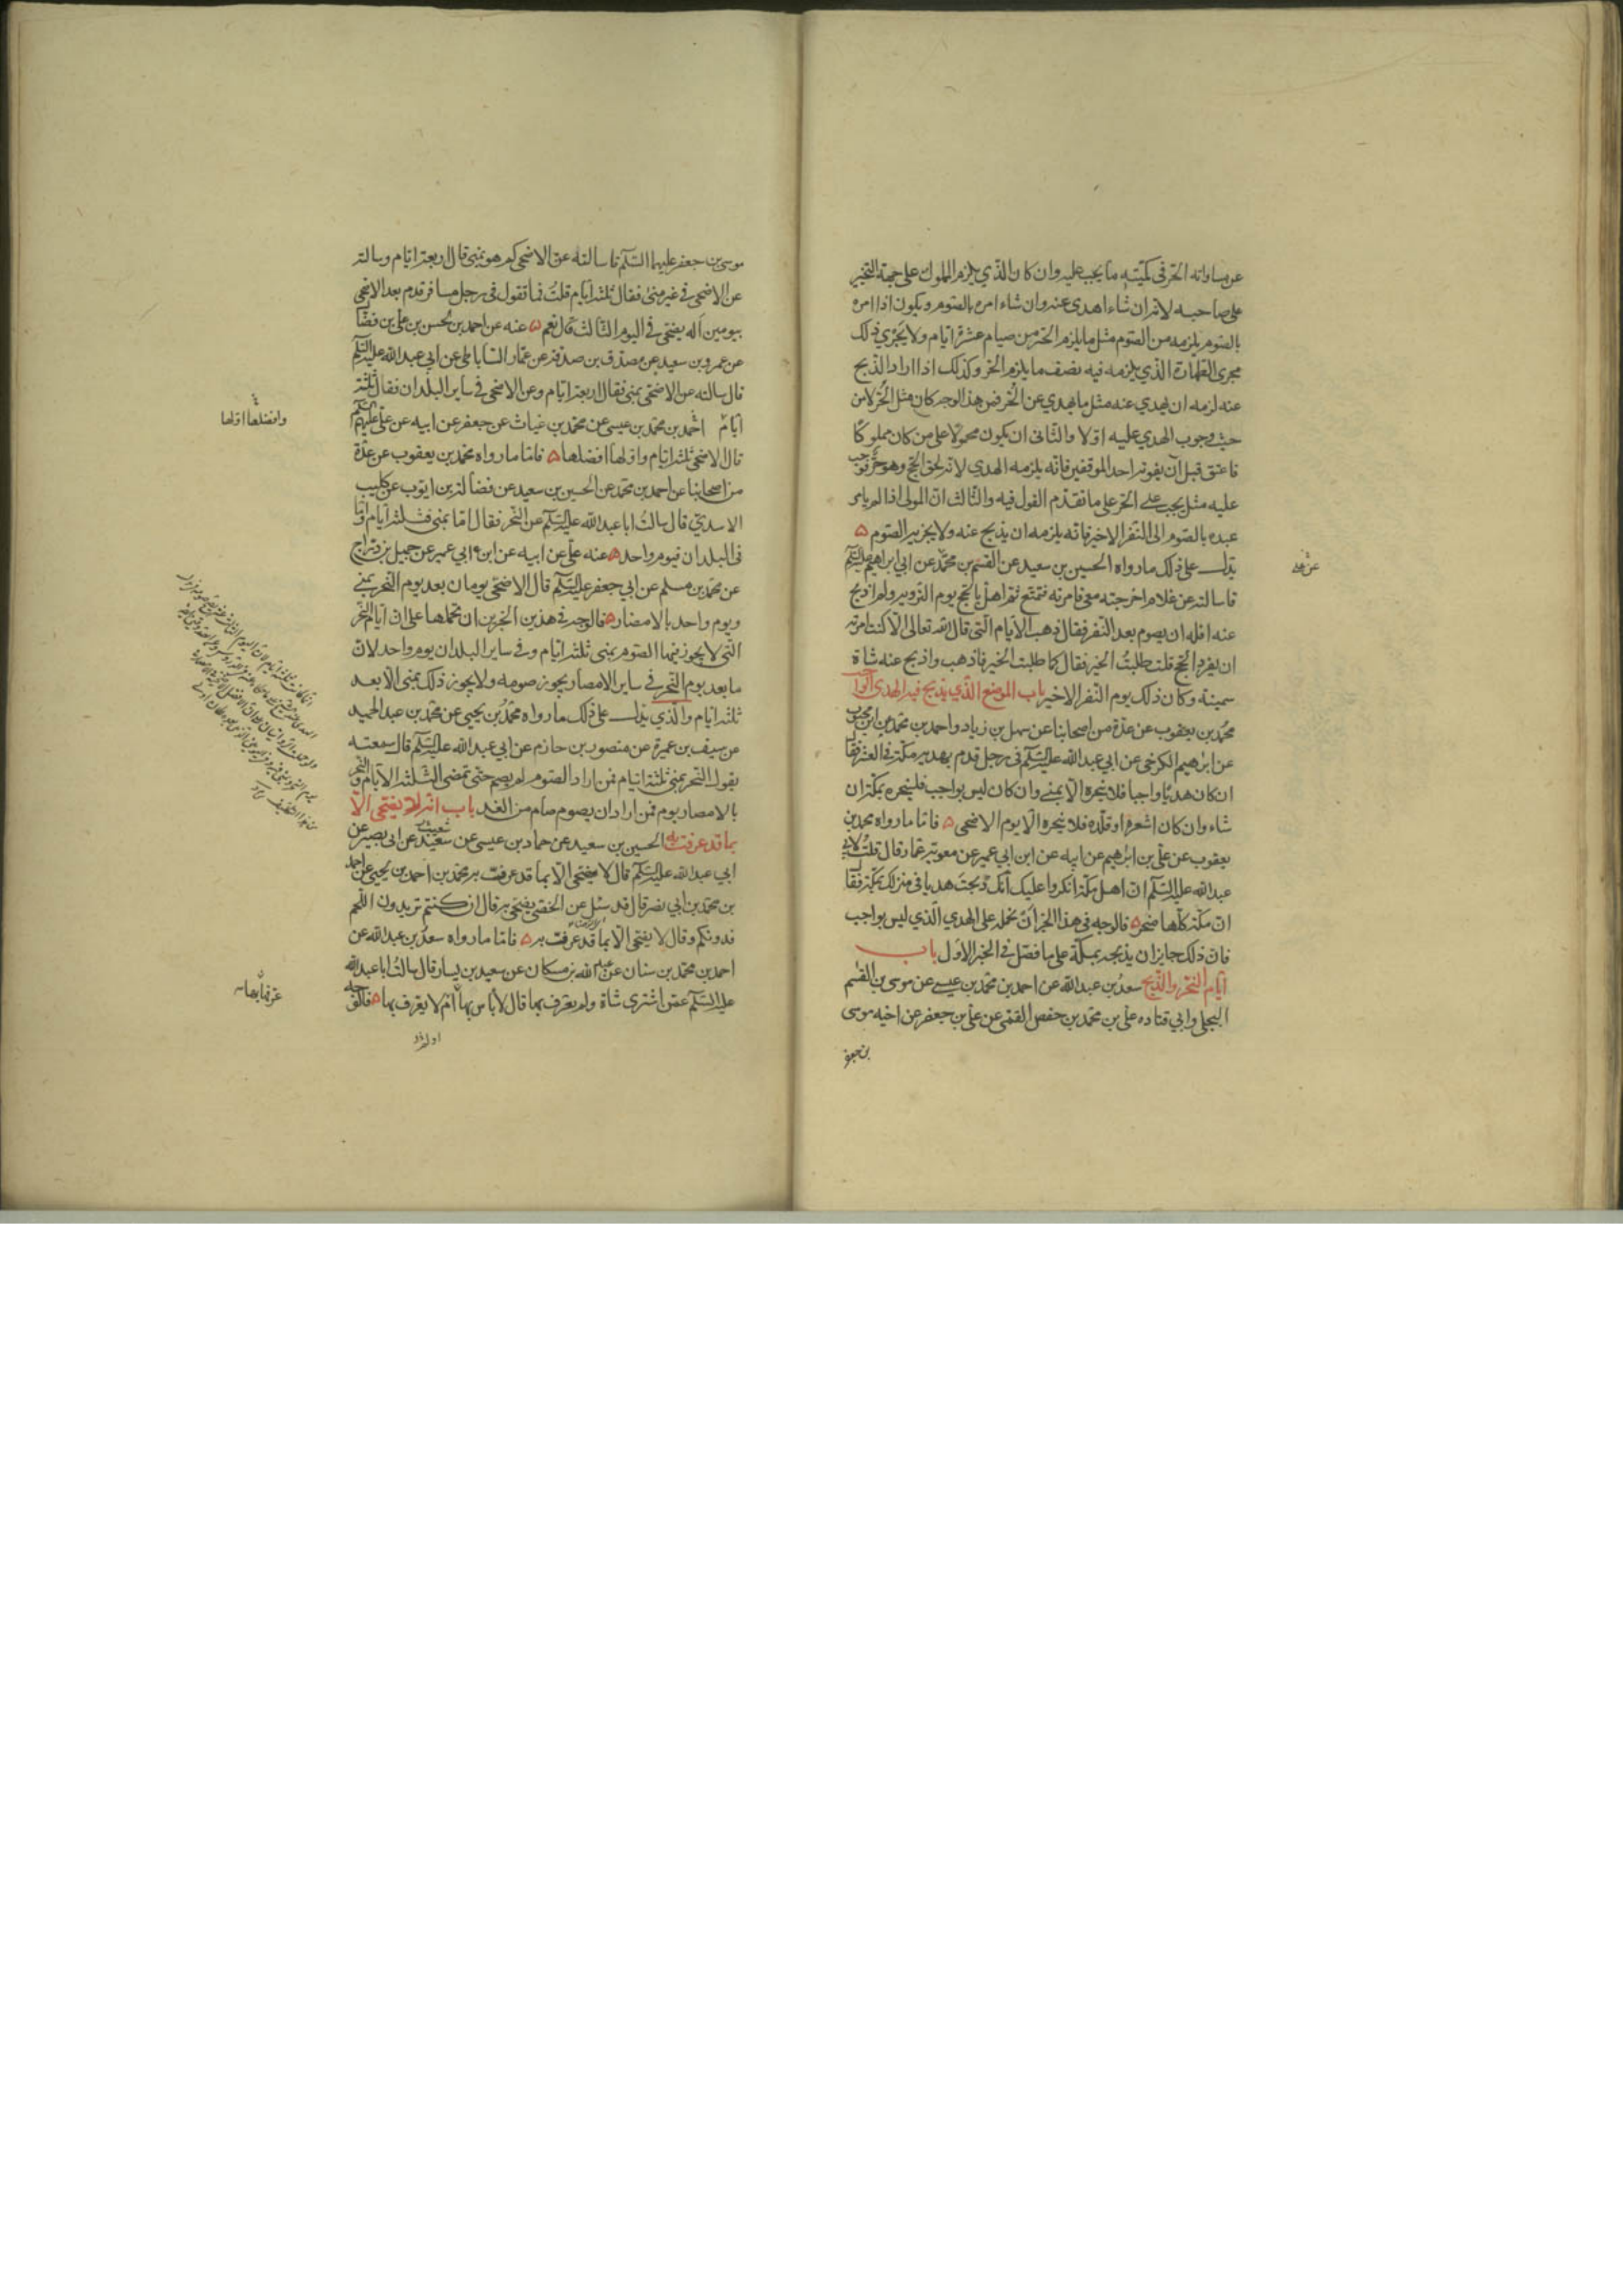 عن مساواته الحر فى كميّته ما يجب عليه وان كان الذي يلزم المملوك على جهة التخيير
على صاحبه لانه ان شاء اهدى عنه وان شاء امره بالصوم ويكون اذا امره
بالصوم يلزمه من الصوم مثل ما يلزم الحر من صيام عشرة ايام ولا يجري ذلك
مجرى الظهارة الذي يلزمه فيه نصف ما يلزم الحر وكذلك اذا اراد الذبح
عنه لزمه ان يهدي عنه مثل ما يهدي عن الحر فمن هذا الوجه كان مثل الحر لا من
حيث وجوب الهدي عليه اولا والثاني ان يكون محمولا على من كان مملوكا
فاعتق قبل ان يفوته احد الموقفين فانه يلزمه الهدي لانه لحق الحج وهو حر فوجب
عليه مثل يجب على الحر على ما تقدم القول فيه والثالث ان المولى اذا لم يامر
عبده بالصوم الى النفر الاخير فانه يلزمه ان يذبح عنه ولا يجزيه الصوم ه
يدل على ذلك ما رواه الحسين بن سعيد عن القسم بن محمد عن ابي ابراهيم عليه السلم
قال سالته عن غلام اخرجته معى فامرته فتمتع ثم اهل بالحج يوم التروية ولم اذبح
عنه افله ان يصوم بعد النفر فقال ذهب الايام التى قال الله تعالى الا كنت امرته
ان يفرد الحج قلت طلبت الخير فقال كما طلبت الخير فاذهب واذبح عنه شاة
سمينة وكان ذلك يوم النفر الاخير باب الموضع الذي يذبح فيه الهدي الواجب
محمد بن يعقوب عن عدة من اصحابنا عن سهل بن زياد واحمد بن محمد عن ابن محبوب
عن ابراهيم الكرخي عن ابي عبد الله عليه السلم في رجل قدم بهديه مكة في العشر فقال
ان كان هديا واجبا فلا ينحره الا بمنى وان كان ليس بواجب فلينحره بمكة ان
شاء وان كان اشعره او قلده فلا ينحره الا يوم الاضحى ه فاما ما رواه محمد بن
يعقوب عن علي بن ابراهيم عن ابيه عن ابن ابي عمير عن معوية بن عمار قال قلت لابي
عبد الله عليه السلم ان اهل مكة انكروا عليك انك ذبحت هديا في منزلك بمكة فقال
ان مكة كلها منحر ه فالوجه في هذا الخبر ان نحمله على الهدي الذي ليس بواجب
فان ذلك جايز ان يذبحه بمكة على ما فصل في الخبر الاول باب
ايام النحر والذبح سعد بن عبد الله عن احمد بن محمد بن عيسى عن موسى بن القسم
البجلي وابي قتاده علي بن محمد بن حفص القمي عن علي بن جعفر عن اخيه موسى
بن جعفر
موسى بن جعفر عليهما السلم قال سالته عن الاضحى كم هو بمنى قال اربعة ايام وسالته
عن الاضحى في غير منى فقال ثلثة ايام قلت فما تقول في رجل مسافر قدم بعد الاضحى
بيومين اله يضحى في اليوم الثالث قال نعم ه عنه عن احمد بن الحسن بن علي بن فضال
عن عمرو بن سعيد عن مصدق بن صدقة عن عمار الساباطي عن ابي عبد الله عليه السلم
قال سالته عن الاضحى بمنى فقال اربعة ايام وعن الاضحى في ساير البلدان فقال ثلثة
ايام احمد بن محمد بن عيسى عن محمد بن غياث عن جعفر عن ابيه عن علي عليهم السلم
وافضلها اولها
قال الاضحى ثلثة ايام واولها افضلها ه فاما ما رواه محمد بن يعقوب عن عدة
من اصحابنا عن احمد بن محمد عن الحسين بن سعيد عن فضالة بن ايوب عن كليب
الاسدي قال سالت ابا عبد الله عليه السلم عن النحر فقال اما بمنى فثلثة ايام واما
في البلدان فيوم واحد ه عنه علي عن ابيه عن ابن ابي عمير عن جميل بن دراج
عن محمد بن مسلم عن ابي جعفر عليه السلم قال الاضحى يومان بعد يوم النحر بمنى
ويوم واحد بالامصار ه فالوجه في هذين الخبرين ان نحملها على ان ايام النحر
التي لا يجوز فيها الصوم بمنى ثلثة ايام وفي ساير البلدان يوم واحد لان
ما بعد يوم النحر في ساير الامصار يجوز صومه ولا يجوز ذلك بمنى الا بعد
ثلثة ايام والذي يدل على ذلك ما رواه محمد بن يحيى عن محمد بن عبد الحميد
عن سيف بن عميرة عن منصور بن حازم عن ابي عبد الله عليه السلم قال سمعته
يقول النحر بمنى ثلثة ايام فمن اراد الصوم لم يصم حتى تمضى الثلثة الايام والنحر
بالامصار يوم فمن اراد ان يصوم صام من الغد باب انه لا يضحى الا
بما قد عرفت به الحسين بن سعيد عن حماد بن عيسى عن سعيد عن ابي بصير عن
ابي عبد الله عليه السلم قال لا يضحى الا بما قد عرفت به محمد بن احمد بن يحيى عن احمد
بن محمد بن ابي نصر قال قد سئل عن الخصي يضحى به قال ان كنتم تريدون اللحم
فدونكم وقال لا يضحى الا بما قد عرفت به ه فاما ما رواه سعد بن عبد الله عن
احمد بن محمد بن سنان عن عبد الله بن مسكان عن سعيد بن يسار قال سالت ابا عبد الله
عليه السلم عمن اشترى شاة ولم يعرف بها قال لا باس بها ام لا يعرف بها ه فالوجه